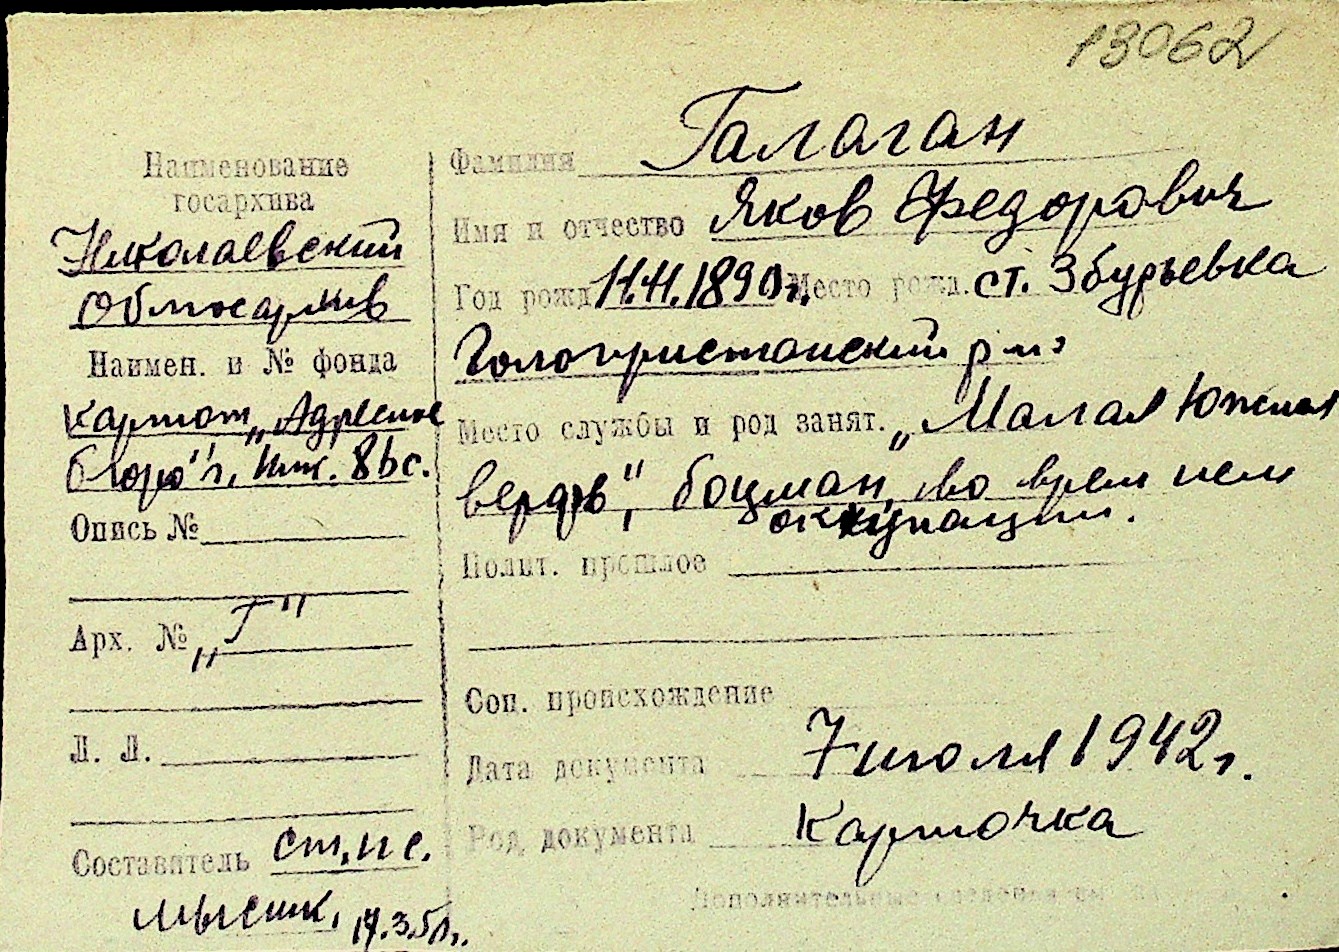 13062
Наименование
госархива
Николаевский
Облгосархив
Наимен. и № фонда
картот. „Адресное
бюро" г. Ник.
Опись №
Арх. № „Г"
Л. Л.
Составитель ст. н с.
Фамилия Галаган
Имя и отчество Яков Федорович
Год рожд. 11.11.1890 г. Место рожд. ст. Збурьевка
Голопристанский р-н
Место службы и род занят. „Малая Южная
верфь", боцман, во врем нем
оккупации.
Полит. прошлое
Соп. происхождение
Дата документа 7 июля 1942 г.
Род документа Карточка
Дополнительные сведения см.